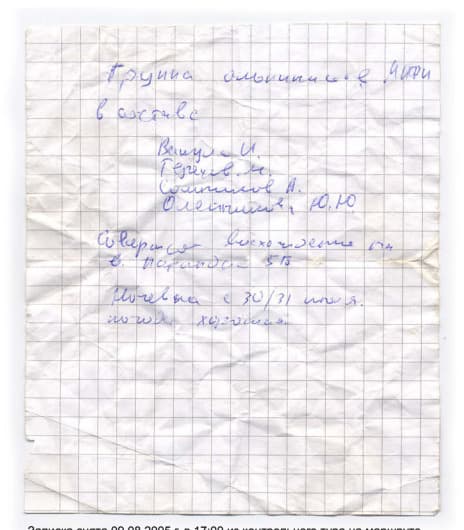 Группа альпинистов МИФИ
в составе
Вакула И.
Терехов М.
Самойлов А.
Ю.Ю.
Совершает восхождение на
в. 5Б
Ночевка с 30/31 июля.
погода хорошая
Записка снята 09.08.2005 г. в 17:00 из контрольного тура на маршруте